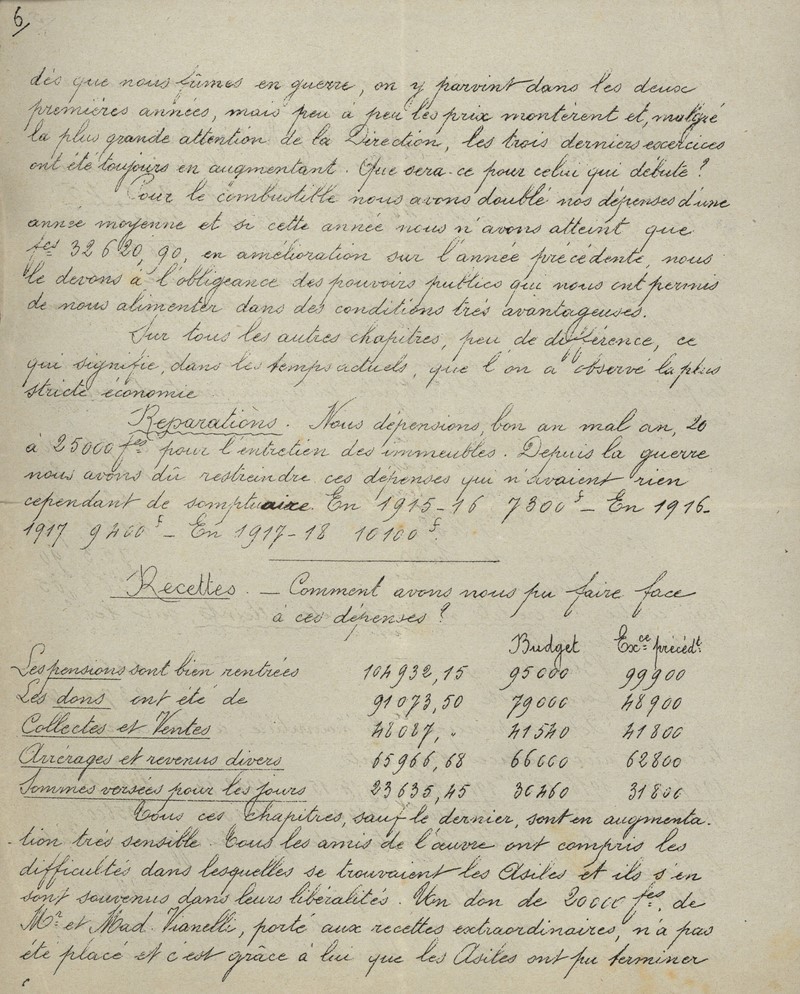 6
dès que nous fûmes en guerre, on y parvint dans les deux
premières années, mais peu à peu les prix montèrent et, malgré
la plus grande attention de la Direction, les trois derniers exercices
ont été toujours en augmentant. Que sera-ce pour celui qui débute ?
Pour le combustible nous avons doublé nos dépenses d'une
année moyenne et si cette année nous n'avons atteint que
fcs 32 620,90, en amélioration sur l'année précédente, nous
le devons à l'obligeance des pouvoirs publics qui nous ont permis
de nous alimenter dans des conditions très avantageuses.
Sur tous les autres chapitres, peu de différence, ce
qui signifie, dans les temps actuels, que l'on a observé la plus
stricte économie
Reparations. Nous dépensions, bon an mal an, 20
à 25000 fcs pour l'entretien des immeubles. Depuis la guerre
nous avons dû restreindre ces dépenses qui n'avaient rien
cependant de somptuaire. En 1915-16 7300 f - En 1916-
1917 9400 f - En 1917-18 10100 f.
Recettes. - Comment avons nous pu faire face
à ces dépenses ?
Budget Exce précédt.
Les pensions sont bien rentrées 104932,15 95000 99900
Les dons ont été de 91073,50 79000 48900
Collectes et Ventes 48087, " 41540 41800
Arrérages et revenus divers 65966,68 66000 62800
Sommes versées pour les jours 23635,45 30460 31800
Tous ces chapitres, sauf le dernier, sont en augmenta-
tion très sensible. Tous les amis de l'œuvre ont compris les
difficultés dans lesquelles se trouvaient les Asiles et ils s'en
sont souvenus dans leurs libéralités. Un don de 20000 fcs, de
Mr et Mad. Vianelli, porté aux recettes extraordinaires, n'a pas
été placé et c'est grâce à lui que les Asiles ont pu terminer